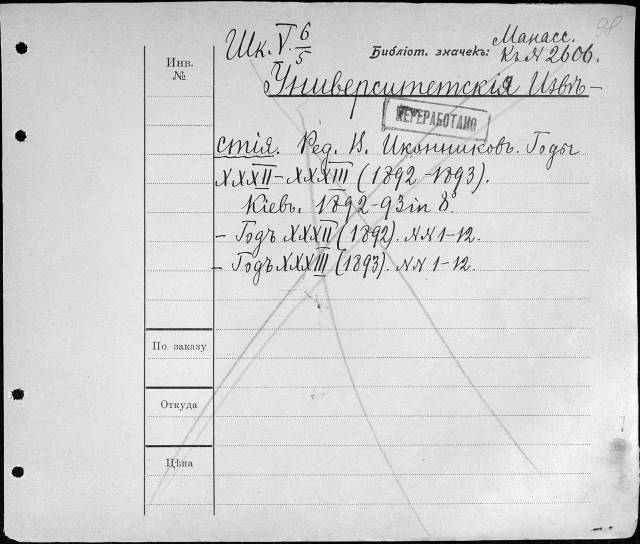 98
Шк. V. 6/5
Библіот. значекъ: Манасс.
Къ N 2606.
Инв.
№
Университетскія Извѣ-
ПЕРЕРАБОТАНО
стія. Ред. В. Иконниковъ. Годы
XXXII-XXXIII (1892-1893).
Кіевъ. 1892-93 in 8°
- Годъ XXXII (1892). NN 1-12.
- Годъ XXXIII (1893). NN 1-12.
По заказу
Откуда
Цѣна